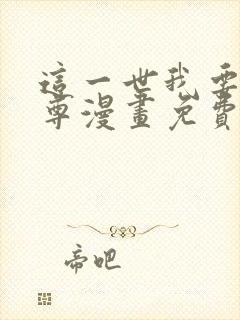 這一世我要
尊漫畫免費
帝吧